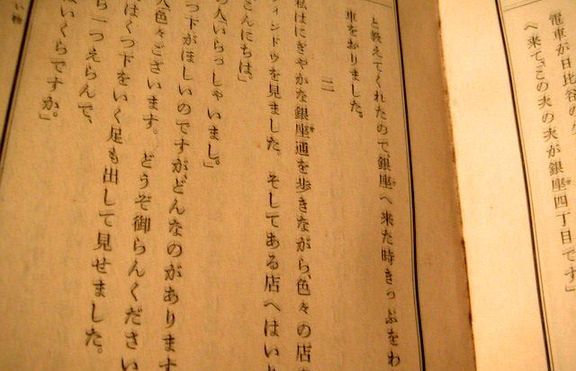 電車が日比谷の
へ来て、「この次の次が銀座四丁目です」
と教えてくれたので、銀座へ来た時きっぷをわ
車をおりました。
二
私はにぎやかな銀座通を歩きながら、色々の店
ィンドウを見ました。そしてある店へはいり
んにちは。」
の人いらっしゃいまし。」
つ下がほしいのですが、どんなのがあります
人色々ございます。どうぞ御らんください
はくつ下をいく足も出して見せました。
ら一つえらんで、
はいくらですか。」
い物